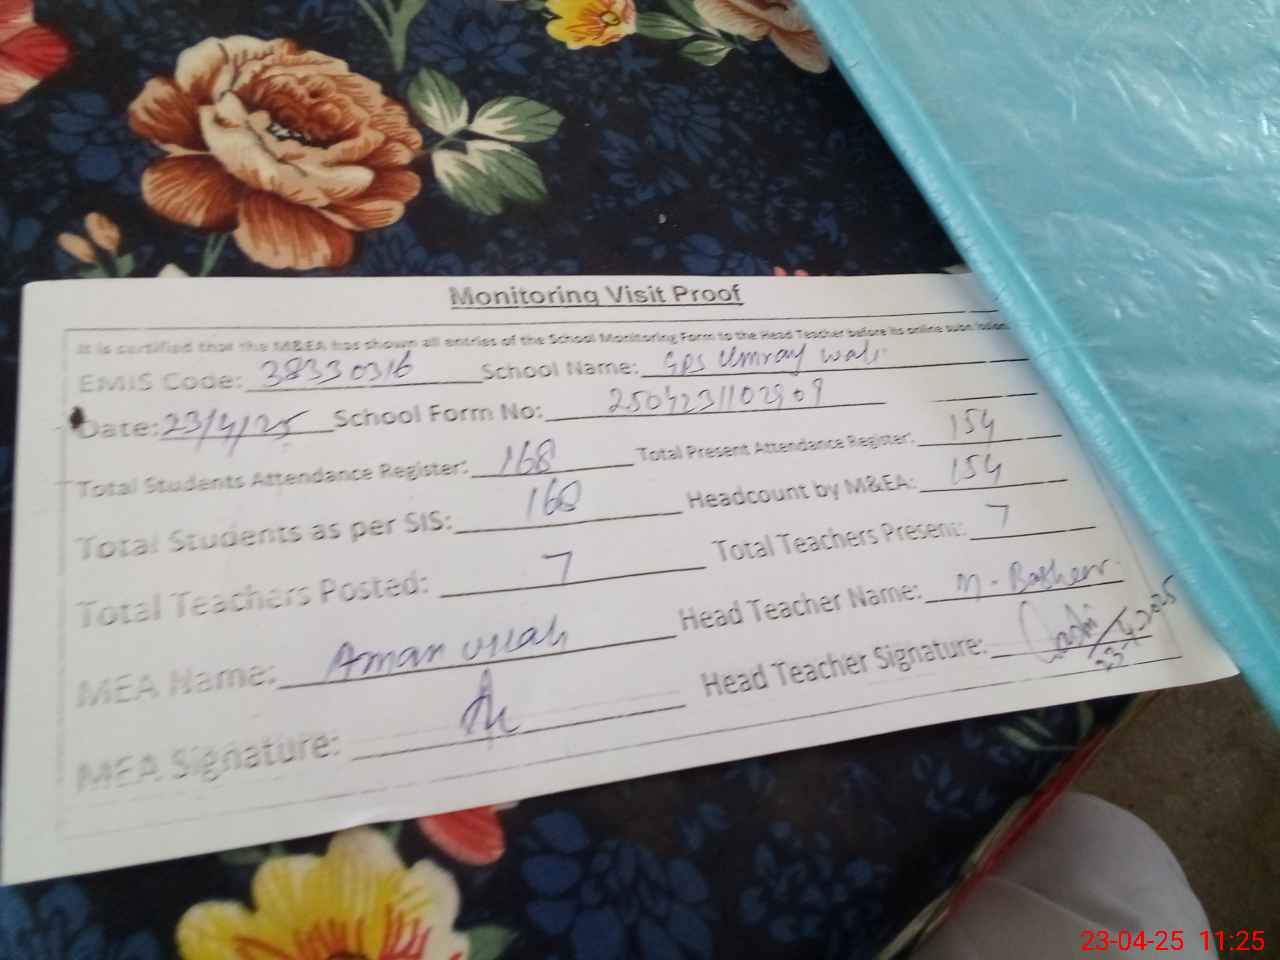 Monitoring Visit Proof
It is certified that the M&EA has shown all entries of the School Monitoring Form to the Head Teacher before its online submission.
EMIS Code: 38330316 School Name: GPS Umray Wali
Date: 23/4/25 School Form No: 2504231102909
Total Students Attendance Register: 168 Total Present Attendance Register: 154
Total Students as per SIS: 168 Headcount by M&EA: 154
Total Teachers Posted: 7 Total Teachers Present: 7
MEA Name: Aman ullah Head Teacher Name: M. Basheer
MEA Signature: Head Teacher Signature:
23-4-2025
23-04-25 11:25